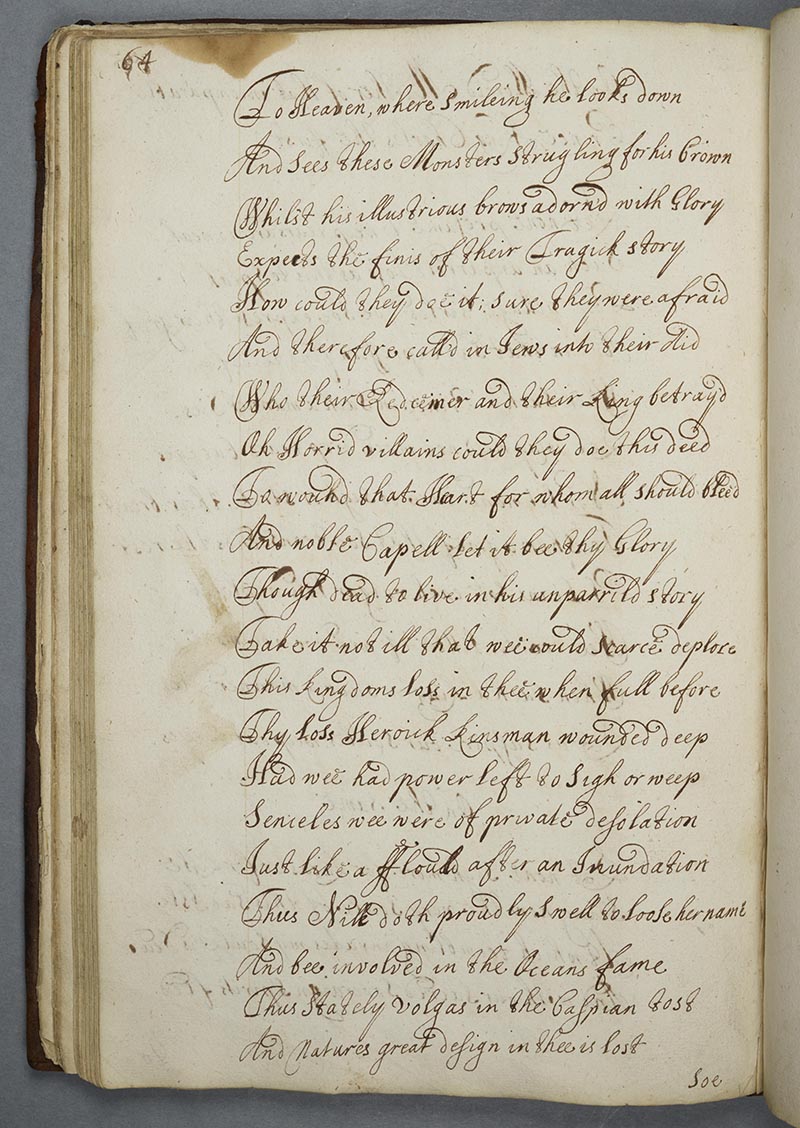 64
To Heaven, where Smileing he looks down
And Sees these Monsters Strugling for his Crown
Whilst his illustrious brows adorn'd with Glory
Expects the finis of their Tragick story
How could they doe it; sure they were afraid
And therefore calld in Jews into their Aid
Who their Redeemer and their King betrayd
Oh Horrid villains could they doe this deed
To wound that Heart for whom all should bleed
And noble Capell let it bee thy Glory
Though dead to live in his unparrild story
Take it not ill that wee could scarce deplore
This kingdoms loss in thee when full before
Thy loss Heroick kinsman wounded deep
Had wee had power left to Sigh or weep
Senceles wee were of private desolation
Just like a fflould after an Inundation
Thus Nille doth proudly Swell to loose her name
And bee involved in the Oceans fame
Thus Stately Volgas in the Caspian tost
And Natures great design in thee is lost
Soe